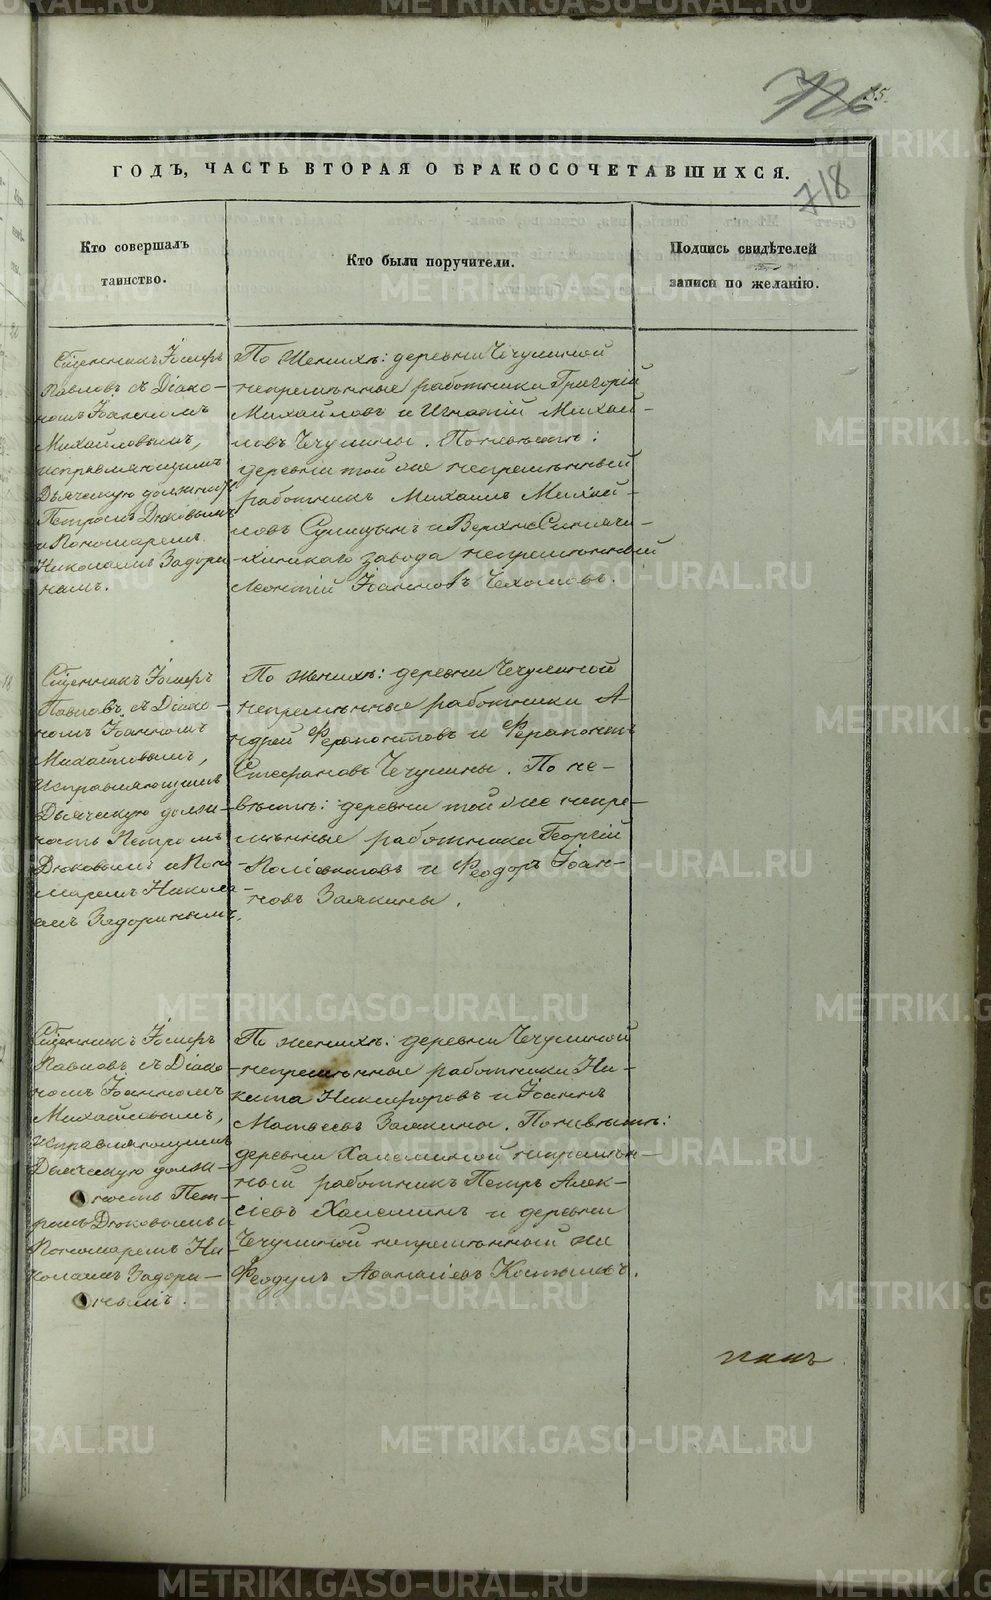 726
85.
ГОДЪ, ЧАСТЬ ВТОРАЯ О БРАКОСОЧЕТАВШИХСЯ.
718
Кто совершалъ
таинство.
Кто были поручители.
Подпись свидѣтелей
записи по желанію.
Сщенникъ Іосифъ
Павловъ, съ Діако-
номъ Іоанномъ
Михайловымъ,
исправляющимъ
Дьяческую должность
Петромъ Дюковымъ
и Пономаремъ
Николаемъ Задори-
нымъ.
По Женихѣ: деревни Чечулиной
непремѣнные работники Григорій
Михайловъ и Игнатій Михай-
ловъ Чечулины. По невѣстѣ:
деревни той же непремѣнный
работникъ Михаилъ Михай-
ловъ и Верхне Синячи-
хинскаго завода непремѣнный
Леонтій Іоанновъ Чехомовъ.
Сщенникъ Іосифъ
Павловъ, съ Діако-
номъ Іоанномъ
Михайловымъ,
исправляющимъ
Дьяческую долж-
ность Петромъ
Дюковымъ и Поно-
маремъ Никола-
емъ Задоринымъ.
По женихѣ: деревни Чечулиной
непремѣнные работники А-
ндрей Ферапонтовъ и Ферапонтъ
Стефановъ Чечулины. По не-
вѣстѣ: деревни той же непре-
мѣнные работники Георгій
и Феодоръ Іоан-
новъ Заякины.
Сщенникъ Іосифъ
Павловъ, съ Діако-
номъ Іоанномъ
Михайловымъ,
исправляющимъ
Дьяческую долж-
ность Пет-
ромъ Дюковымъ и
Пономаремъ Ни-
колаемъ Задори-
нымъ.
По женихѣ: деревни Чечулиной
непремѣнные работники Ни-
кита Никифоровъ и Іоаннъ
Матвѣевъ Заякины. По невѣстѣ:
деревни Халеминой непремѣн-
ный работникъ Петръ Алек-
сѣевъ Халеминъ и деревни
Чечулиной непремѣнный же
Феодулъ Афанасіевъ Костылевъ.
METRIKI.GASO-URAL.RU